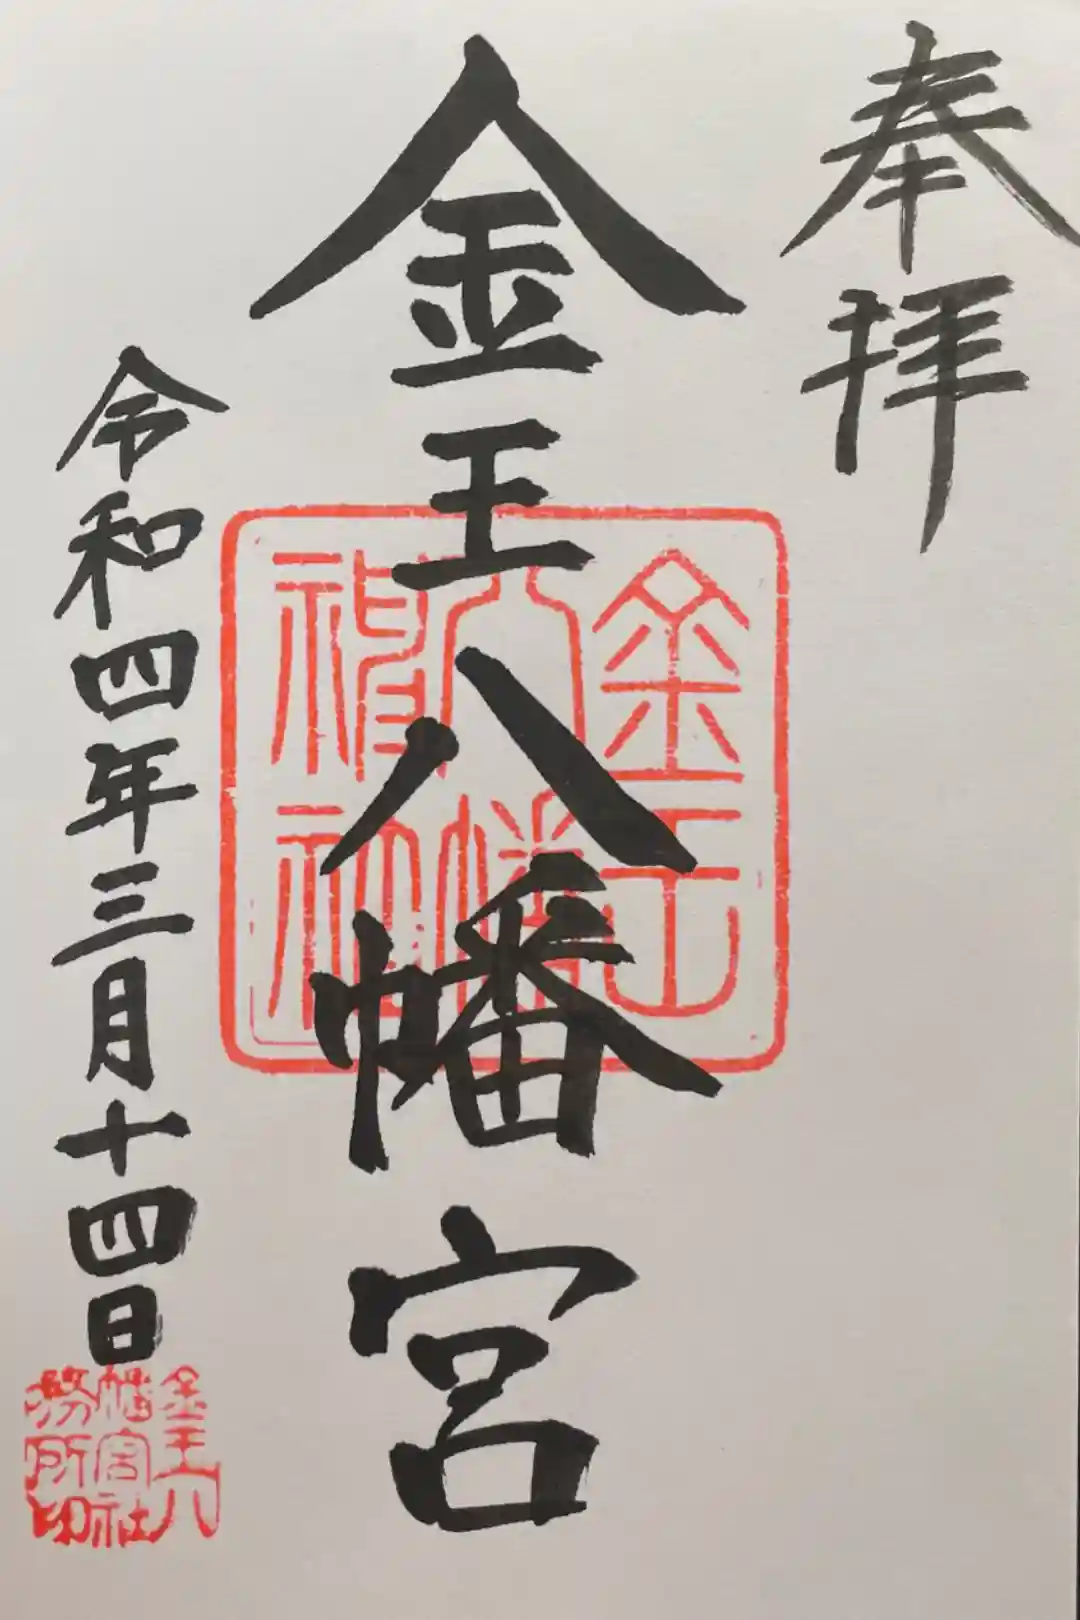 奉拝
金王八幡宮
金王
八幡
神社
令和四年三月十四日
金王八
幡宮社
務所印